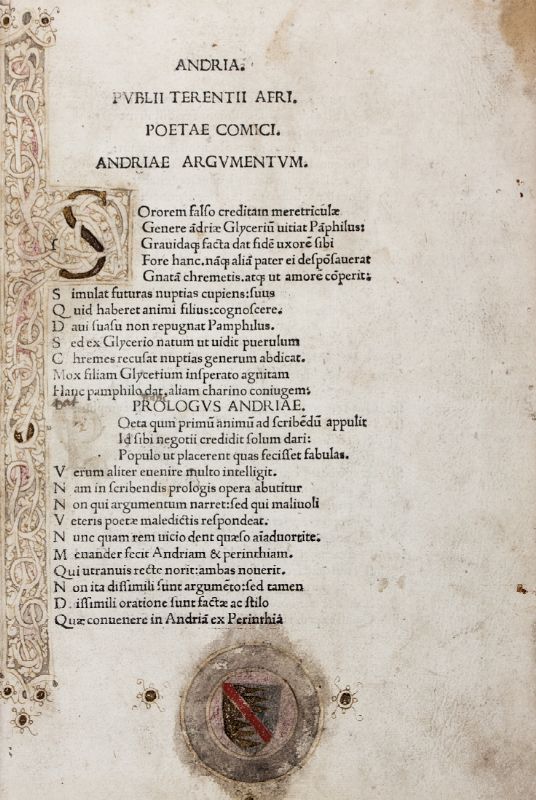 ANDRIA.
PVBLII TERENTII AFRI.
POETAE COMICI.
ANDRIAE ARGVMENTVM.
SOrorem falso creditam meretriculæ
Genere ādriæ Glyceriū uitiat Pāphilus:
Grauidaqꝫ facta dat fidē uxorē sibi
Fore hanc. nāqꝫ aliā pater ei despōsauerat
Gnatā chremetis. atqꝫ ut amore cōperit:
S imulat futuras nuptias cupiens: suus
Q uid haberet animi filius: cognoscere.
D aui suasu non repugnat Pamphilus.
S ed ex Glycerio natum ut uidit puerulum
C hremes recusat nuptias generum abdicat.
Mox filiam Glycerium insperato agnitam
Hanc pamphilo dat, aliam charino coniugem:
PROLOGVS ANDRIAE.
Oeta qum primū animū ad scribēdū appulit
Id sibi negotii credidit solum dari:
Populo ut placerent quas fecisset fabulas.
V erum aliter euenire multo intelligit.
N am in scribendis prologis opera abutitur
N on qui argumentum narret: sed qui maliuoli
V eteris poetæ maledictis respondeat.
N unc quam rem uicio dent quæso aīaduortite.
M enander fecit Andriam & perinthiam.
Qui utranuis recte norit: ambas nouerit.
N on ita dissimili sunt argumēto: sed tamen
D. issimili oratione sunt factæ ac stilo
Quæ conuenere in Andriā ex Perinthiā